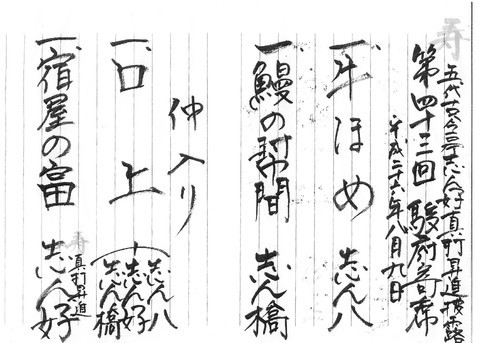 五代目古今亭志ん好真打昇進披露
第四十三回 駿府寄席
平成二十六年八月九日
一、牛ほめ 志ん八
一、鰻の幇間 志ん橋
仲入り
一、口上 志ん八 志ん好 志ん橋
一、宿屋の富 真打昇進 志ん好
寿
寿